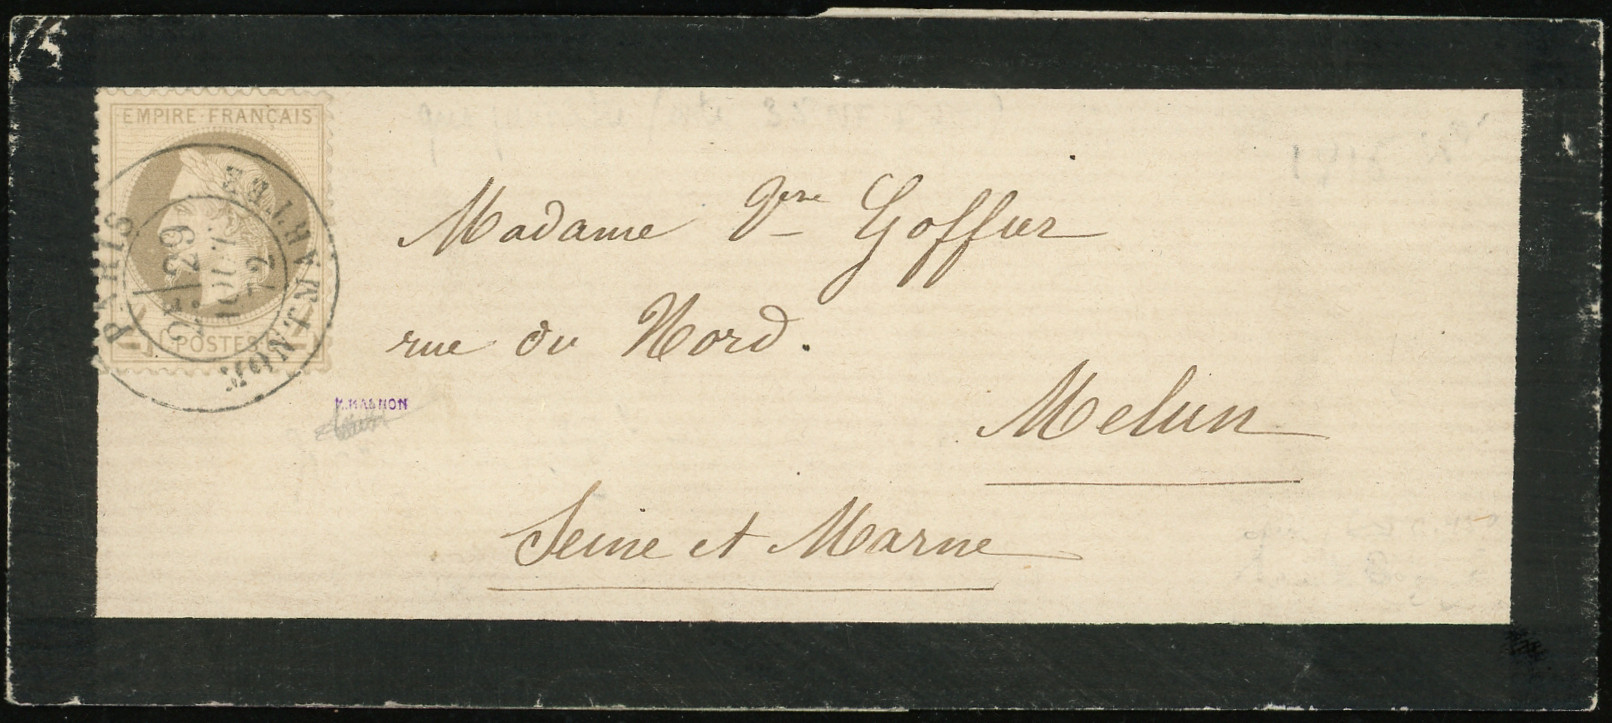 EMPIRE FRANÇAIS
POSTES
PARIS MONTMARTRE
29
72
Madame Vve Goffier
rue du Nord.
Melun
Seine et Marne